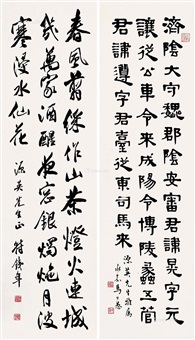 濟陰大守魏郡陰安審君諱晃字元
讓從公車令來成陽令博陵蠡吾管
君諱遵字君臺從東句馬來
源英先生雅屬
春風翦綵作山茶燈火連城
幾萬家酒醒夜窗銀燭炧月波
寒浸水仙花 源英先生正 符鐵年